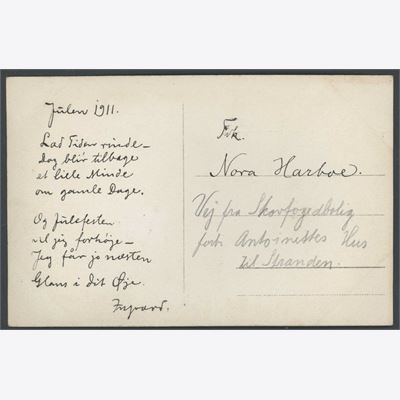 Julen 1911.
Lad Tiden rinde –
dog blir tilbage
et lille Minde
om gamle Dage.
Og Julefesten
vil jeg forhöje –
Jeg får jo næsten
Glans i dit Øje.
Ingvard.
Frk.
Nora Harboe.
Vej fra Skovfogedbolig
forb. Antoinettes Hus
til Stranden.